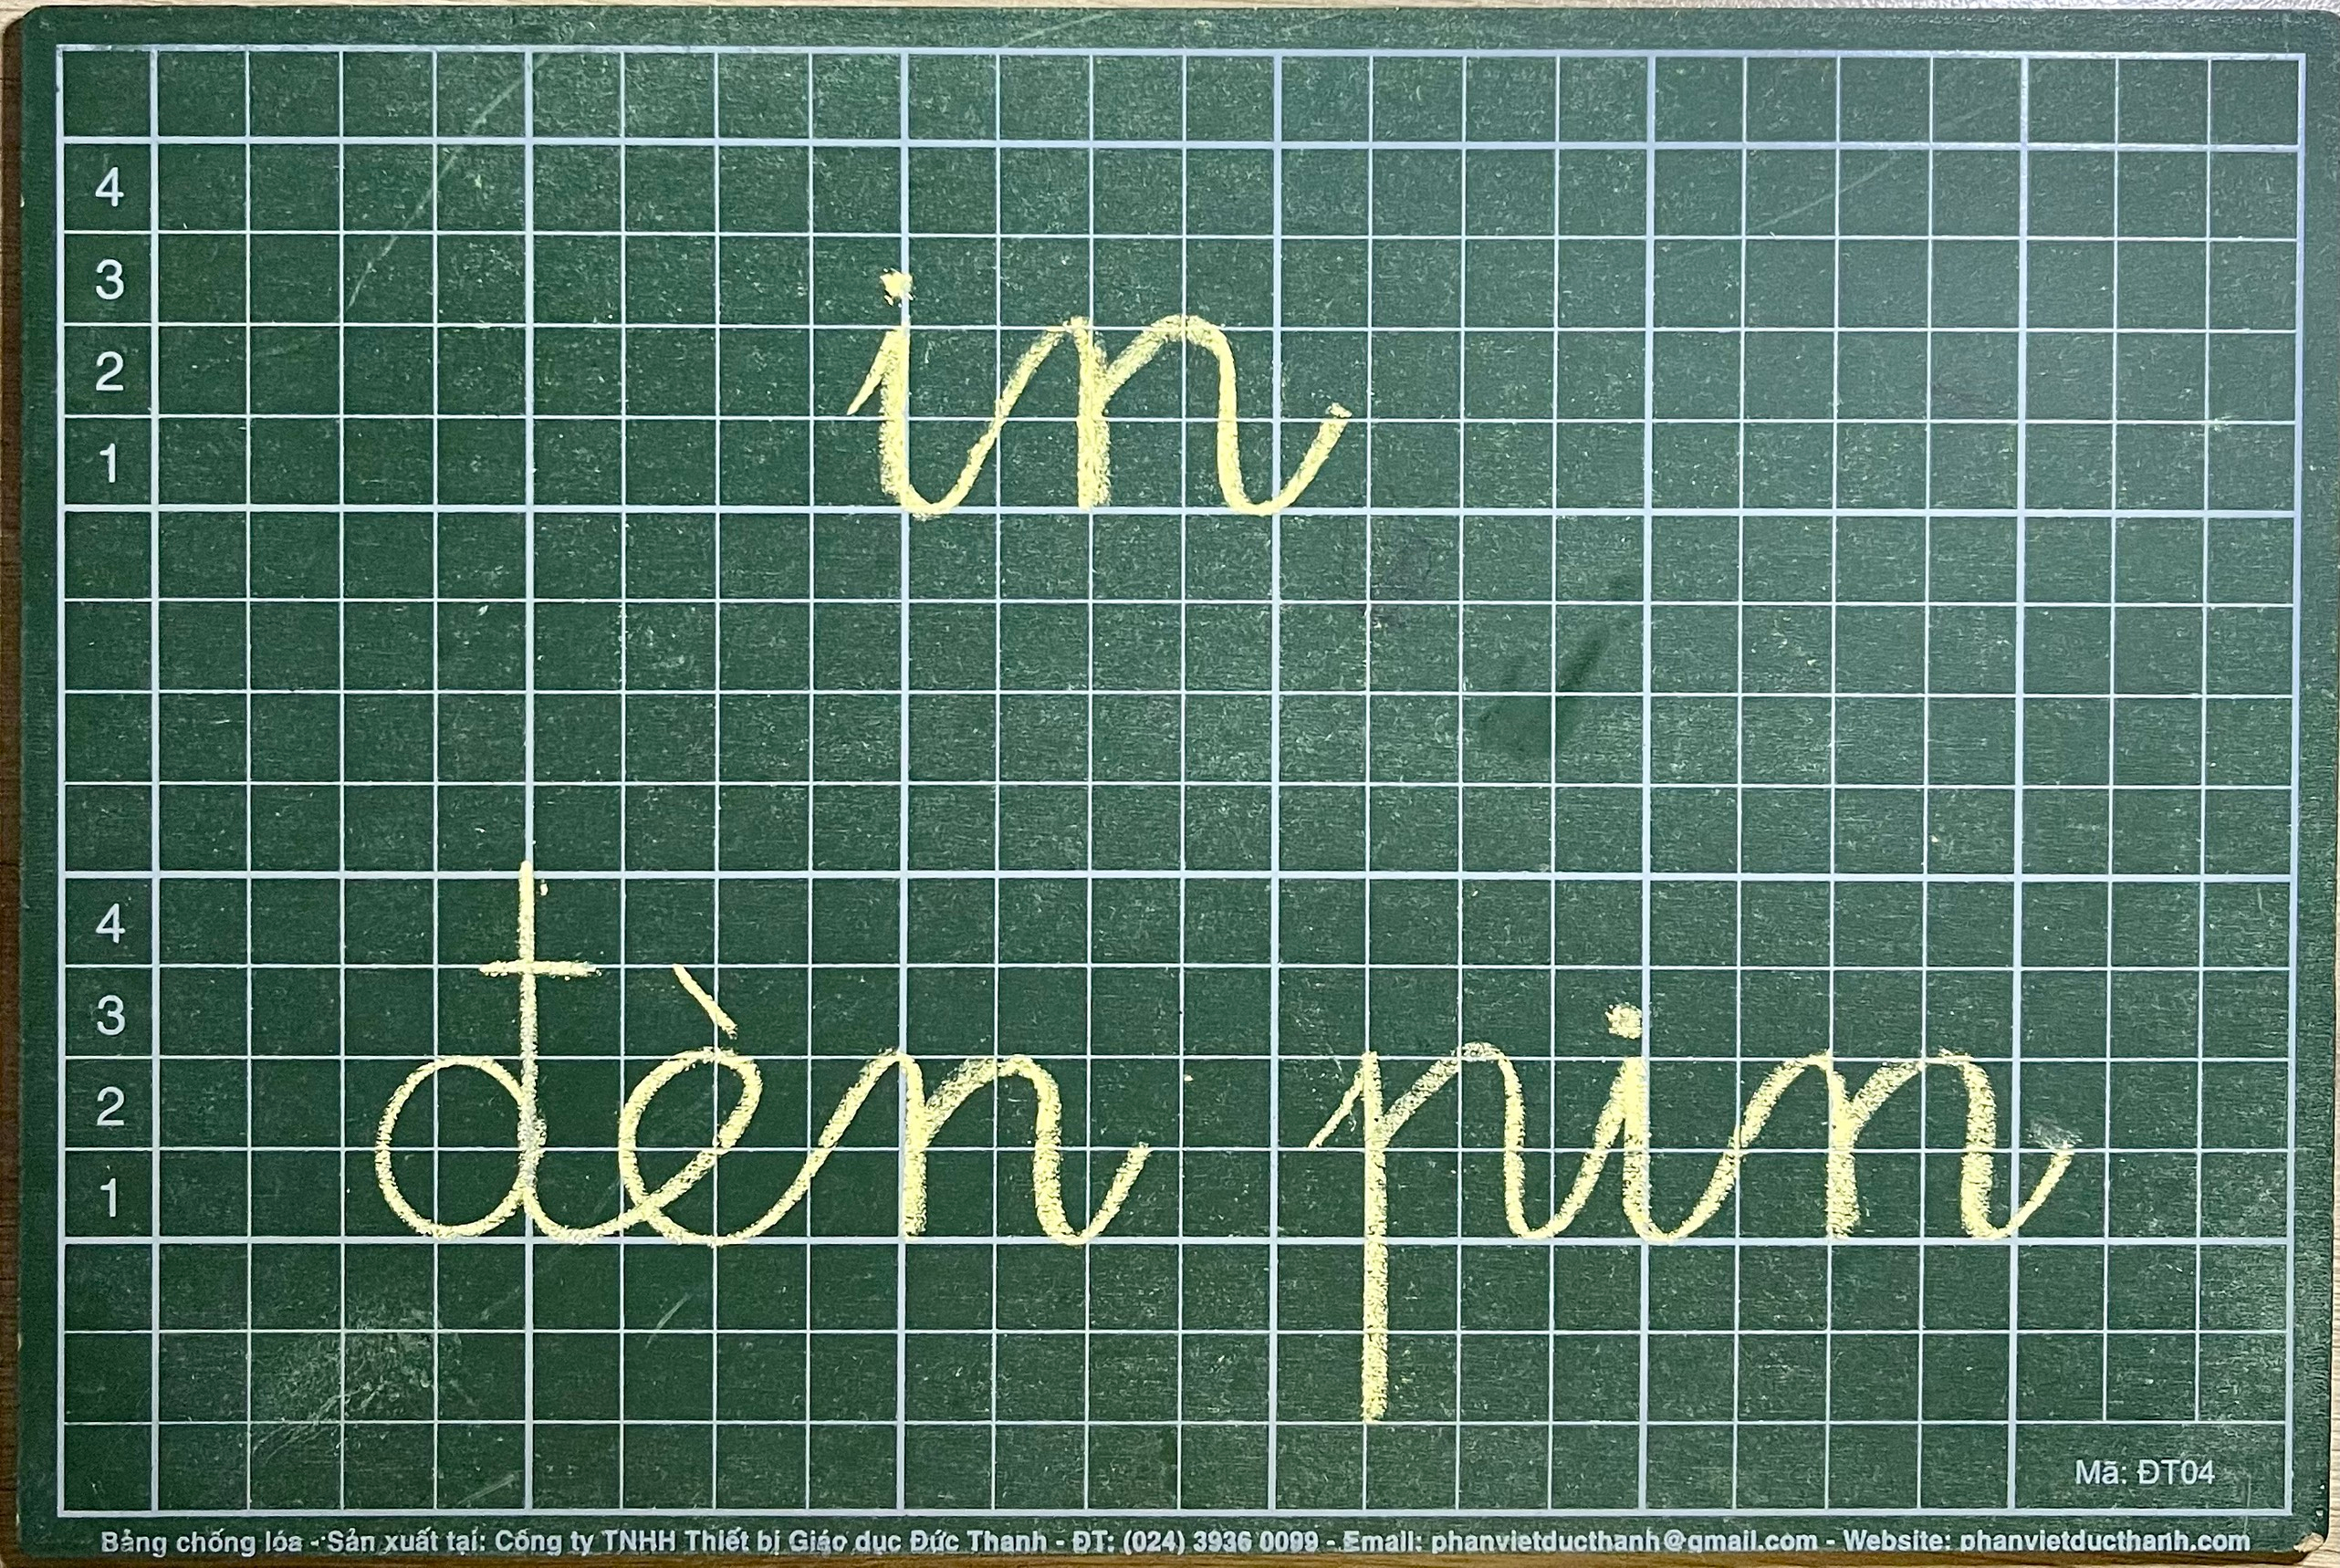 4
3
in
2
1
4
3
đèn pin
2
1
Mã: ĐT04
Bảng chống lóa - Sản xuất tại: Công ty TNHH Thiết bị Giáo dục Đức Thanh - ĐT: (024) 3936 0099 - Email: phanvietducthanh@gmail.com - Website: phanvietducthanh.com